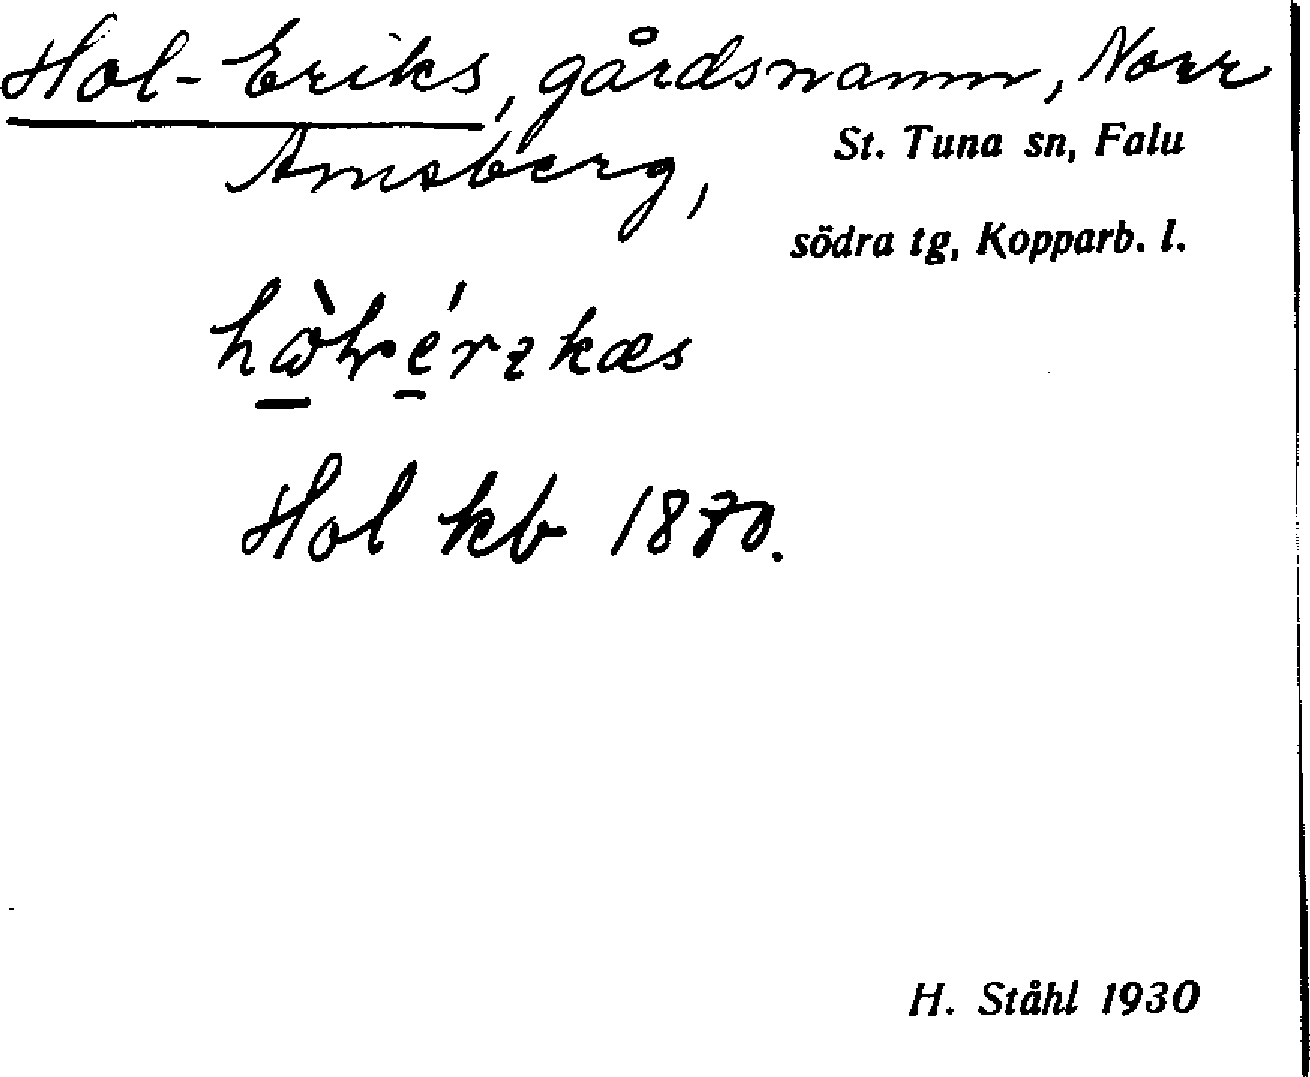 Hol-Eriks, gårdsnamn, Norr
Amsberg,
St. Tuna sn, Falu
södra tg, Kopparb. l.
Hol kb 1880.
H. Ståhl 1930